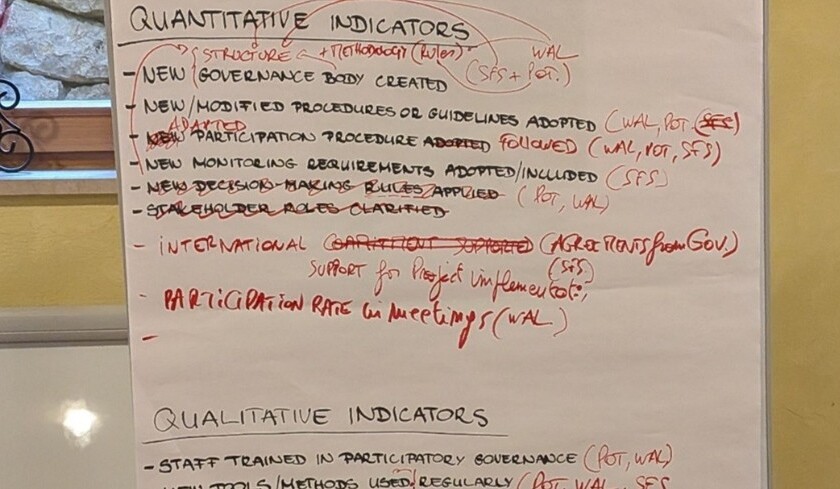 QUANTITATIVE INDICATORS
STRUCTURE + METHODOLOGY (RULES) WAL
- NEW GOVERNANCE BODY CREATED (SFS + POT.)
- NEW/MODIFIED PROCEDURES OR GUIDELINES ADOPTED (WAL, POT, SFS)
ADAPTED
- NEW PARTICIPATION PROCEDURE ADOPTED FOLLOWED (WAL, POT, SFS)
- NEW MONITORING REQUIREMENTS ADOPTED/INCLUDED (SFS)
- NEW DECISION-MAKING RULES APPLIED (POT, WAL)
- STAKEHOLDER ROLES CLARIFIED
- INTERNATIONAL (AGREEMENTS from GOV.)
SUPPORT for Project (SFS)
- PARTICIPATION RATE in meetings (WAL)
-
QUALITATIVE INDICATORS
- STAFF TRAINED IN PARTICIPATORY GOVERNANCE (POT, WAL)
- NEW TOOLS/METHODS USED REGULARLY (POT, WAL, SFS